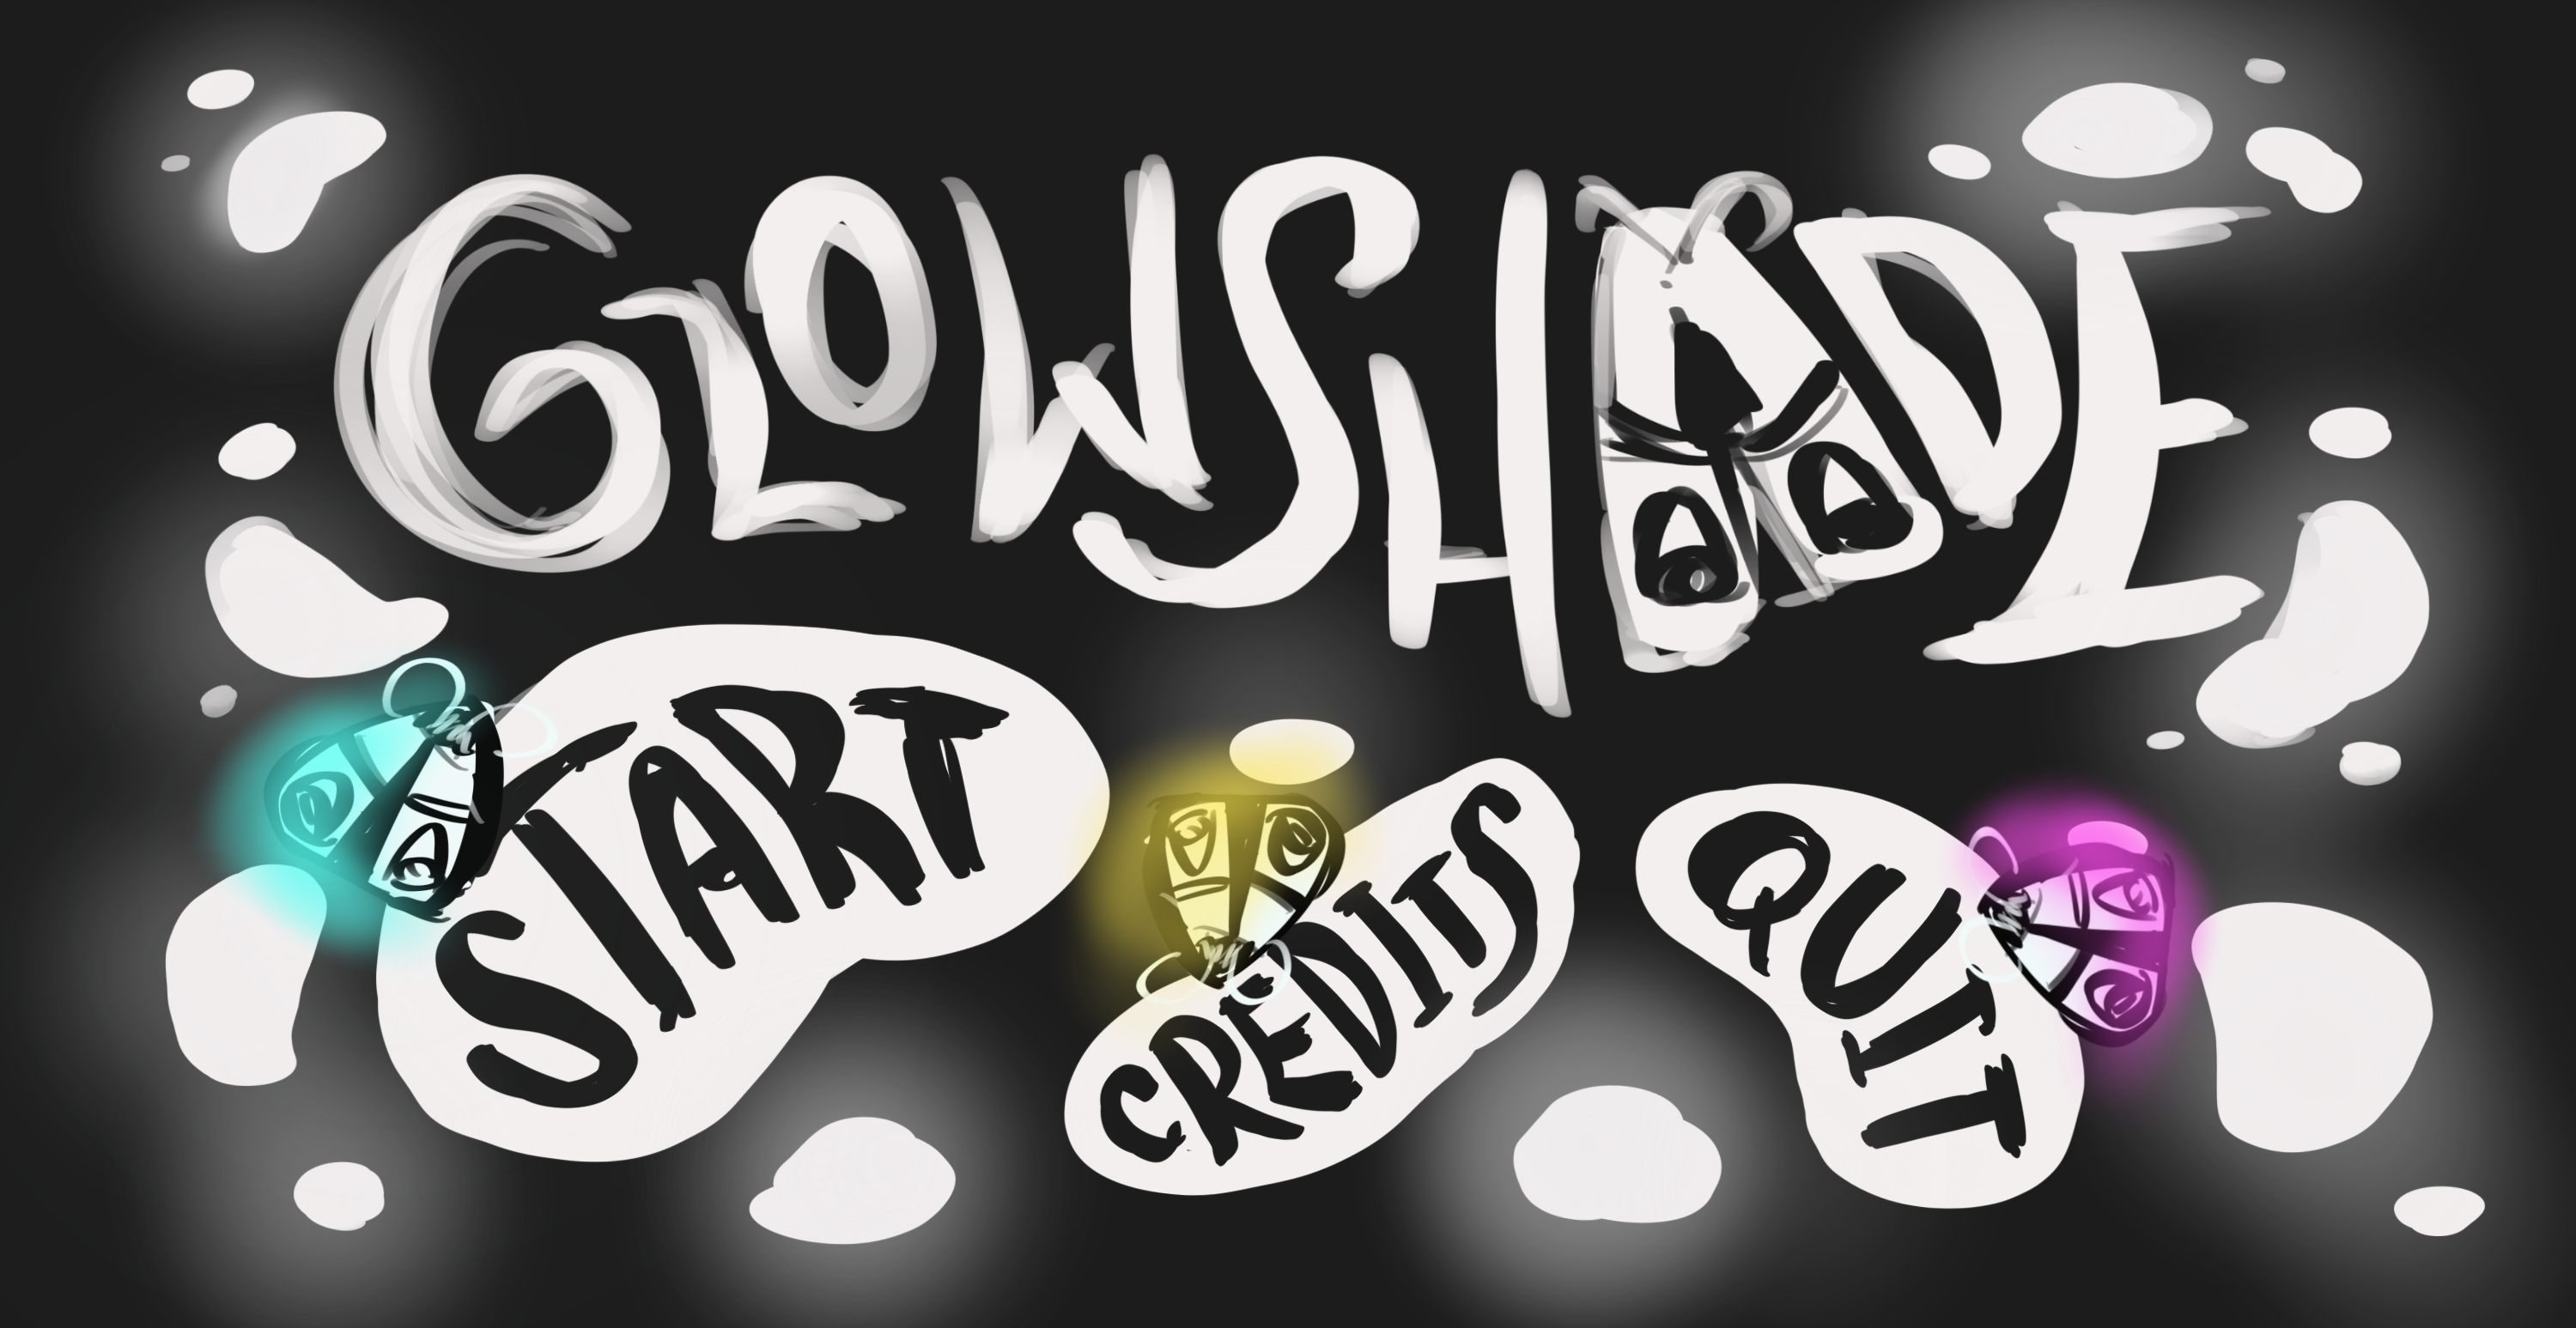 GLOWSHADE
START
CREDITS
QUIT